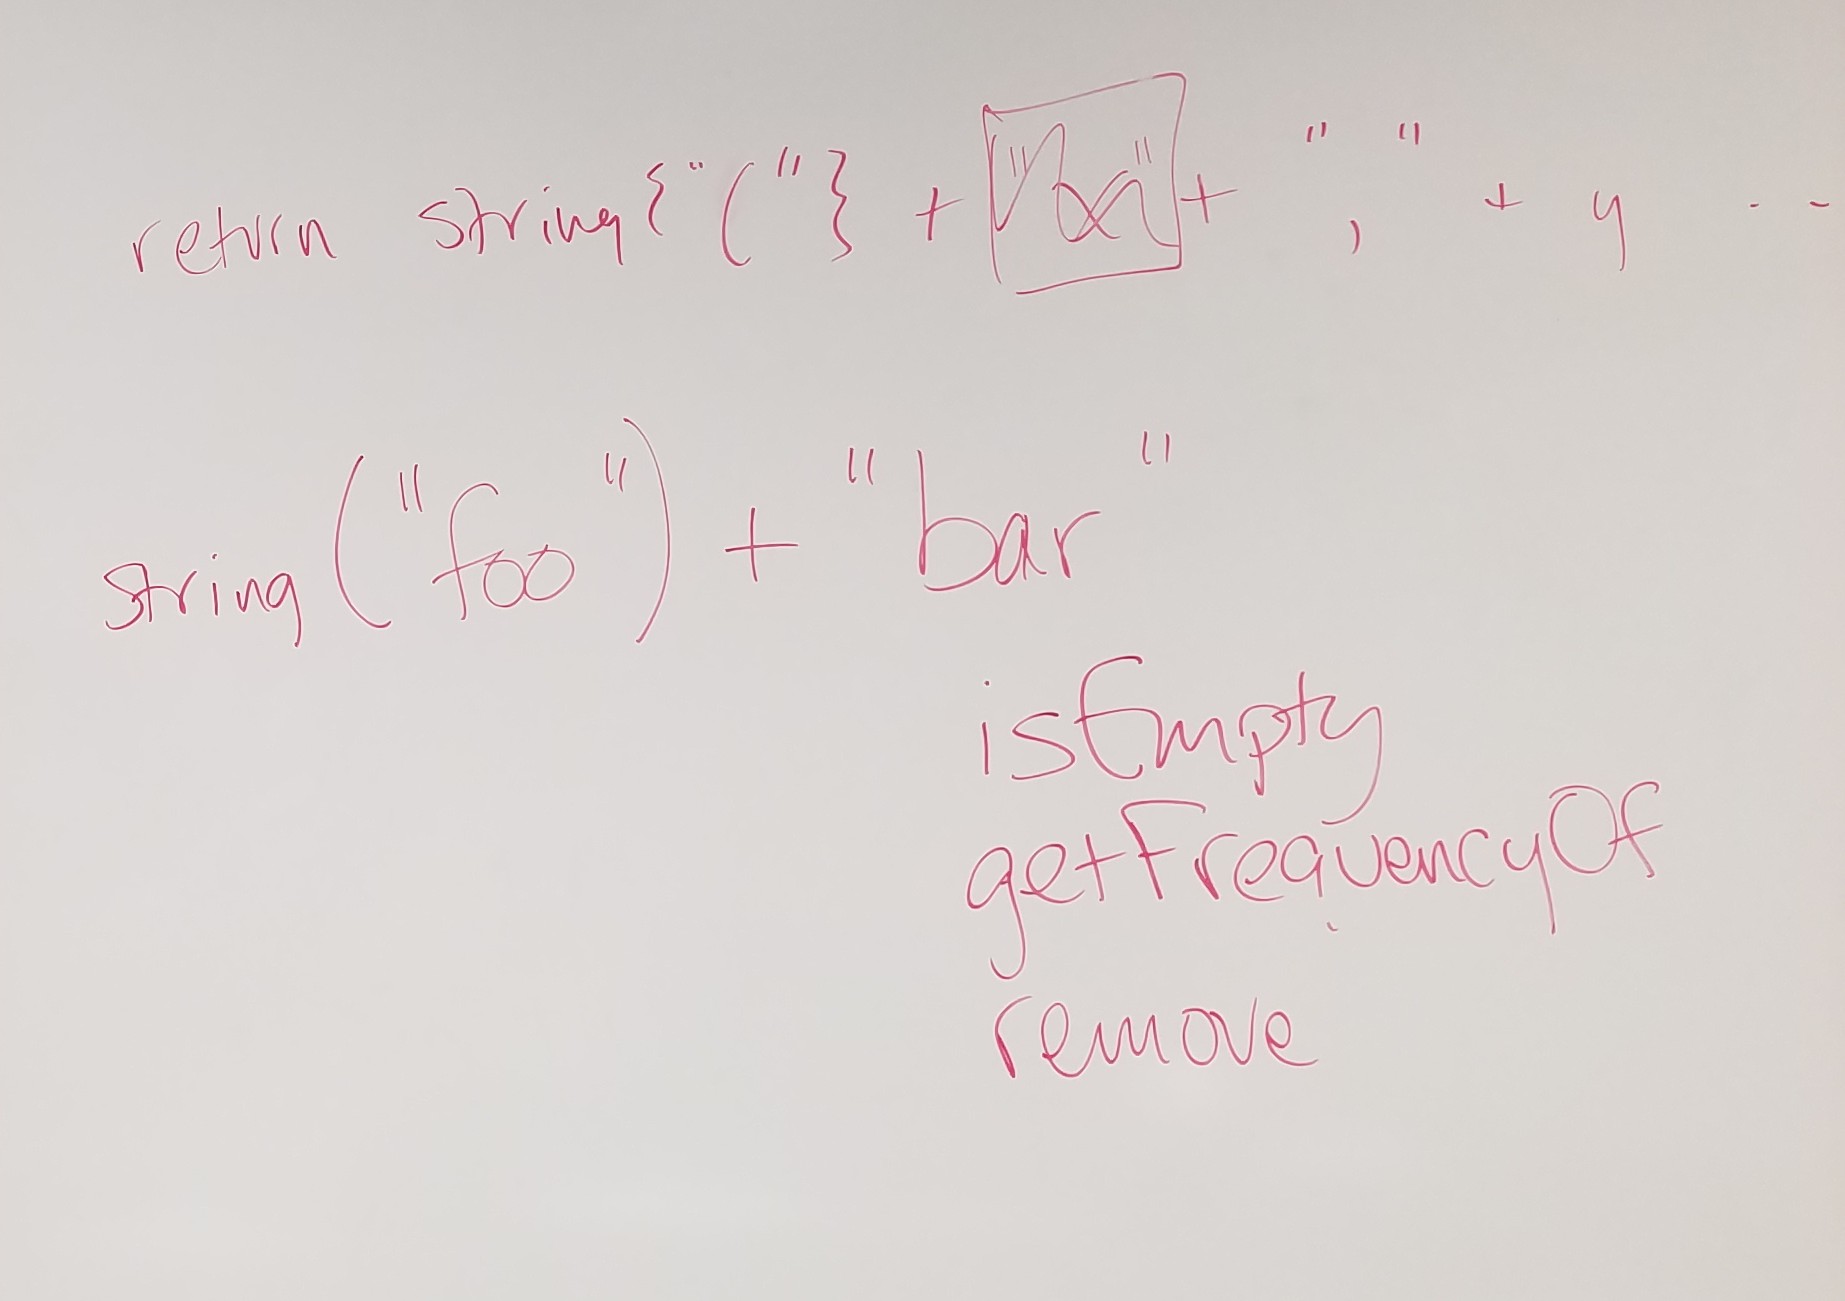 return string{"("} + "x" + "," + y - -
string("foo") + "bar"
isEmpty
getFrequencyOf
remove